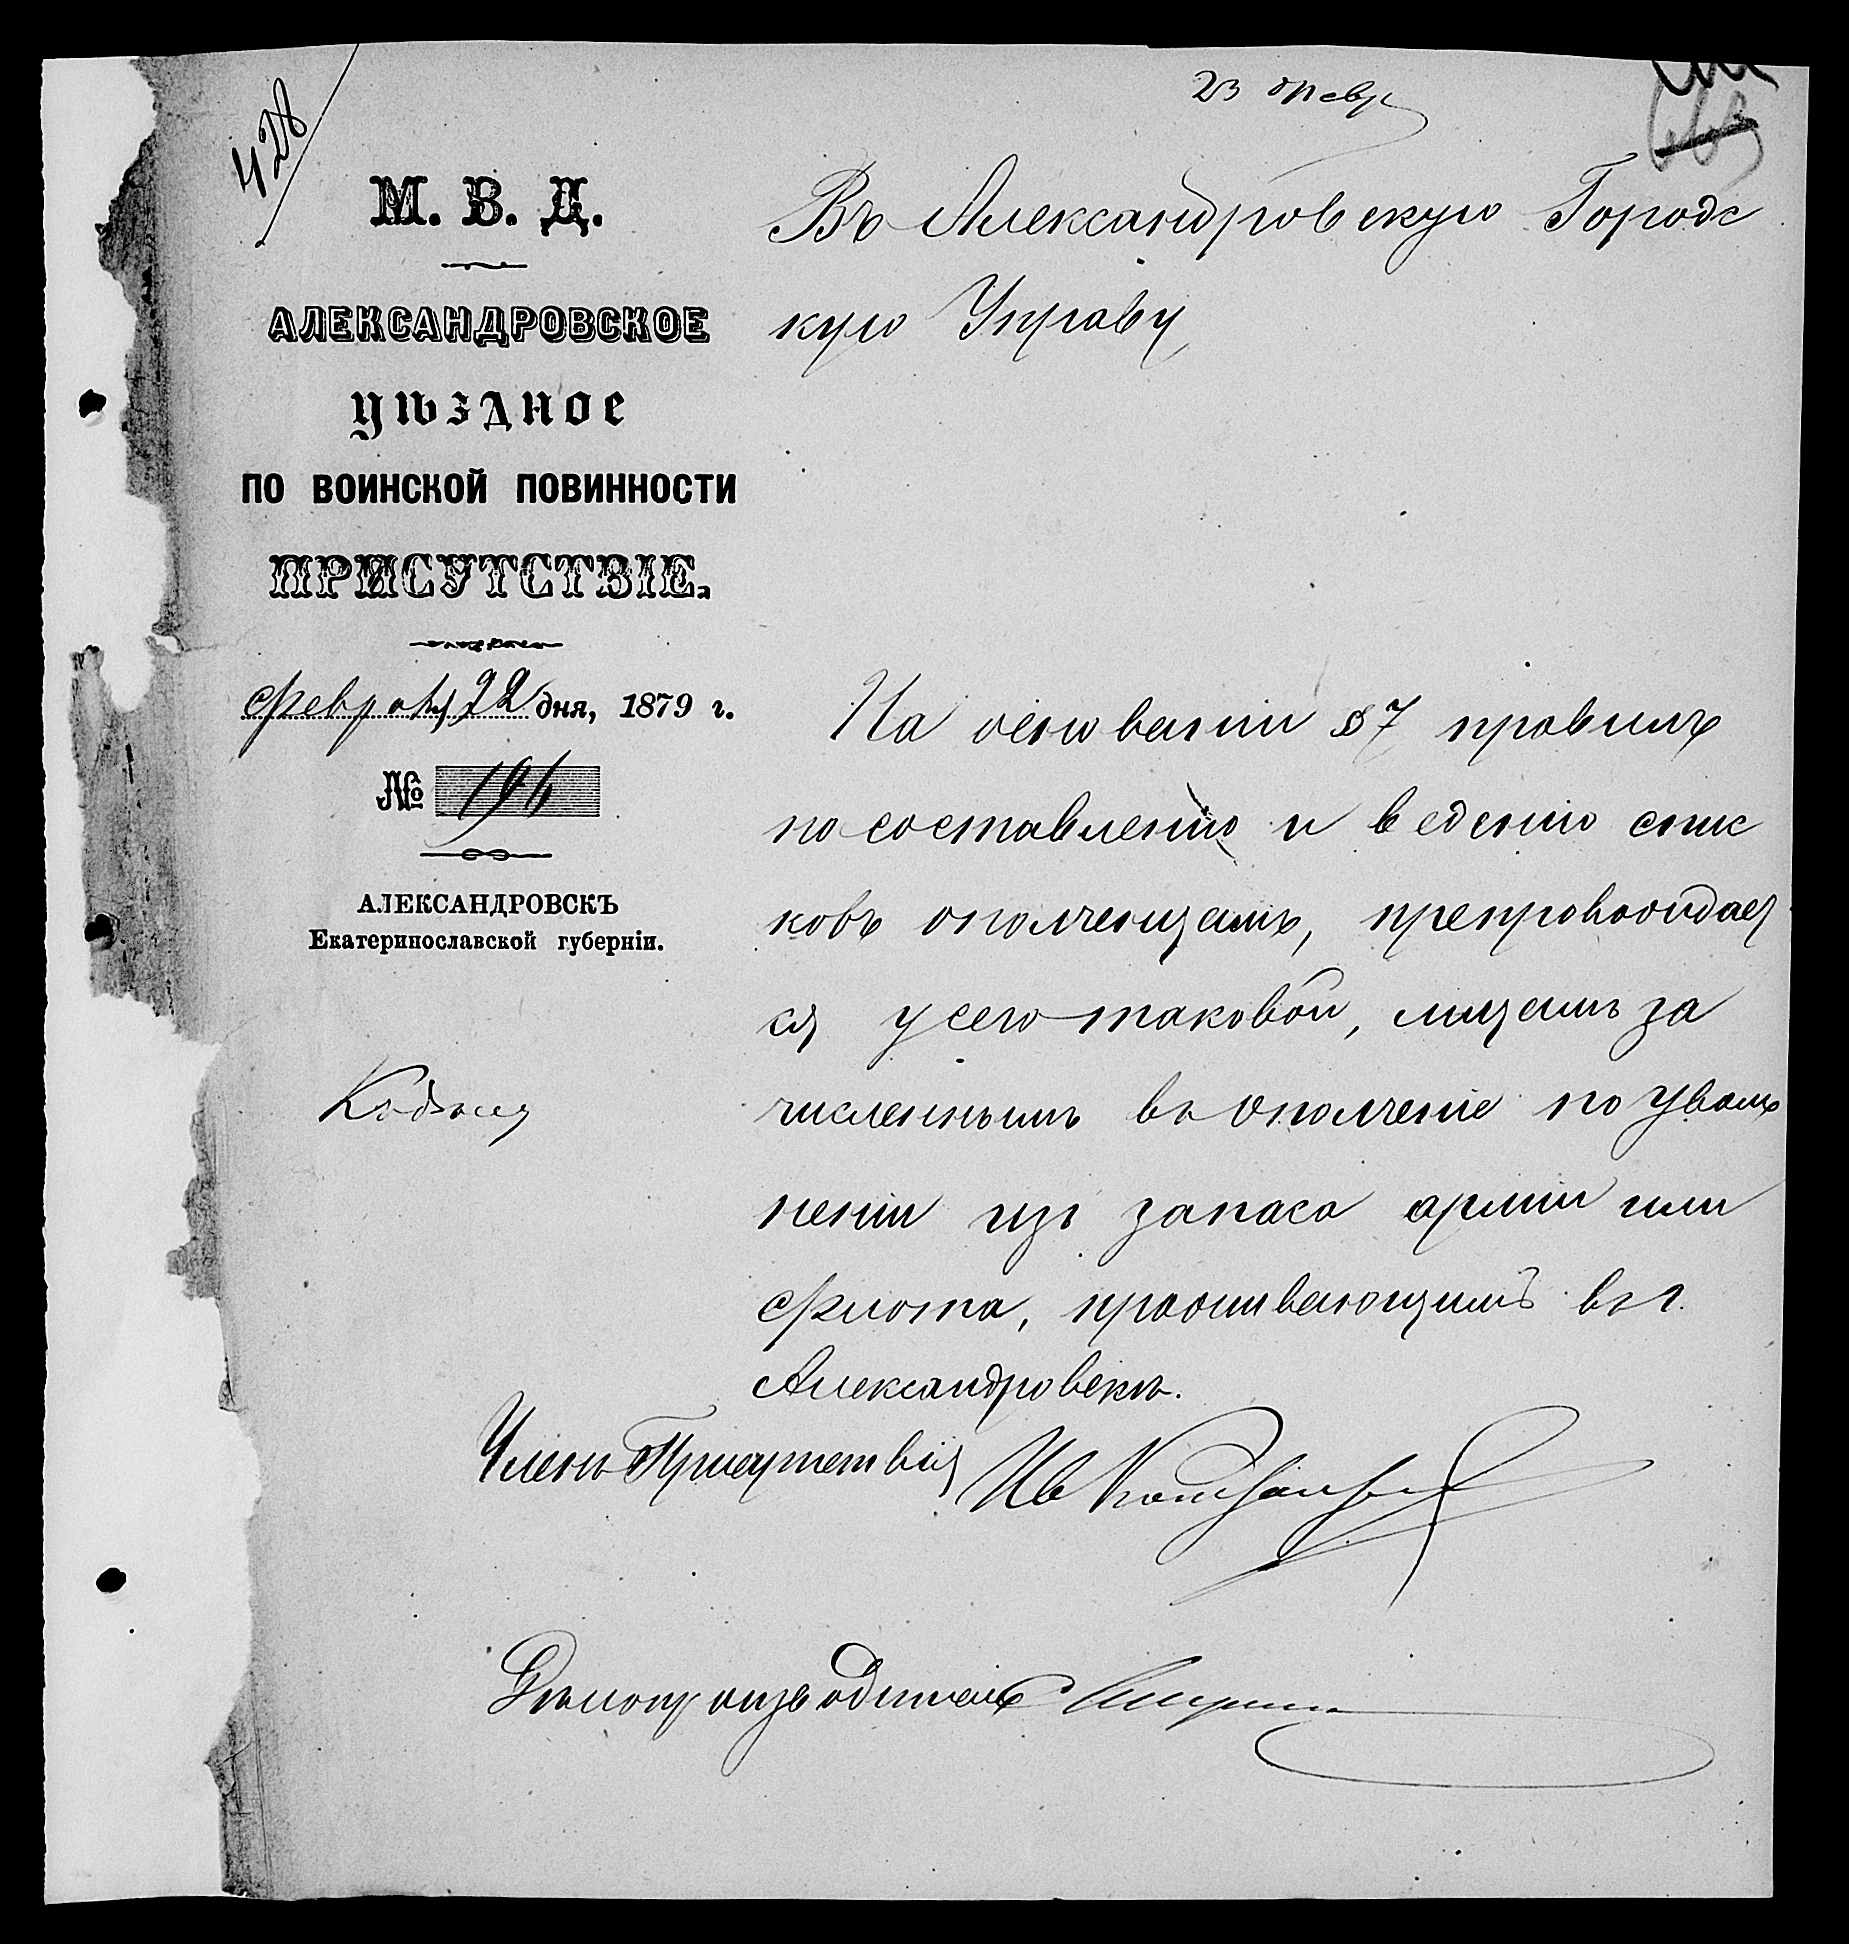 428
23 февр
М. В. Д.
АЛЕКСАНДРОВСКОЕ
УѢЗДНОЕ
ПО ВОИНСКОЙ ПОВИННОСТИ
ПРИСУТСТВІЕ.
Февраля 22 дня, 1879 г.
№ 196
АЛЕКСАНДРОВСКЪ
Екатеринославской губерніи.
Въ Александровскую Городс
кую Управу
На основаніи §7 правилъ
по составленію и веденію спис
ковъ ополченцамъ, препровождает
ся у сего таковой, лицамъ за
численнымъ въ ополченіе по уволь
неніи изъ запаса арміи или
флота, проживающимъ въ г.
Александровскѣ.
Членъ Присутствія Ив
Дѣлопроизводитель